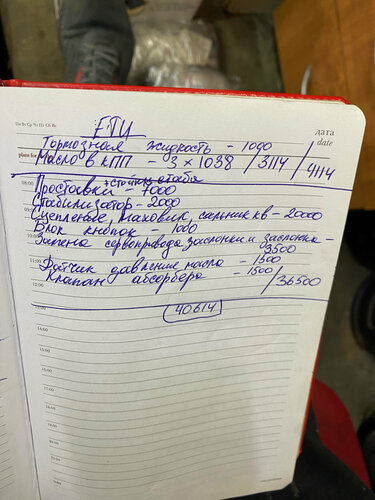 Пн Вт Ср Чт Пт Сб Вс
дата
date
ЕТЦ
Тормозная жидкость - 1000
Масло в КПП - 3 × 1038 / 3114 / 4114
+ стойки стаба
08:00
Проставки - 7000
Стабилизатор - 2000
Сцепление, маховик, сальник кв - 20000
Блок кнопок - 1000
10:00
Замена сервопривода заслонки и заслонка - 3500
11:00
Датчик давления масла - 1500
Клапан абсорбера - 1500 / 36500
12:00
40614
14:00
15:00
16:00
17:00
18:00
19:00